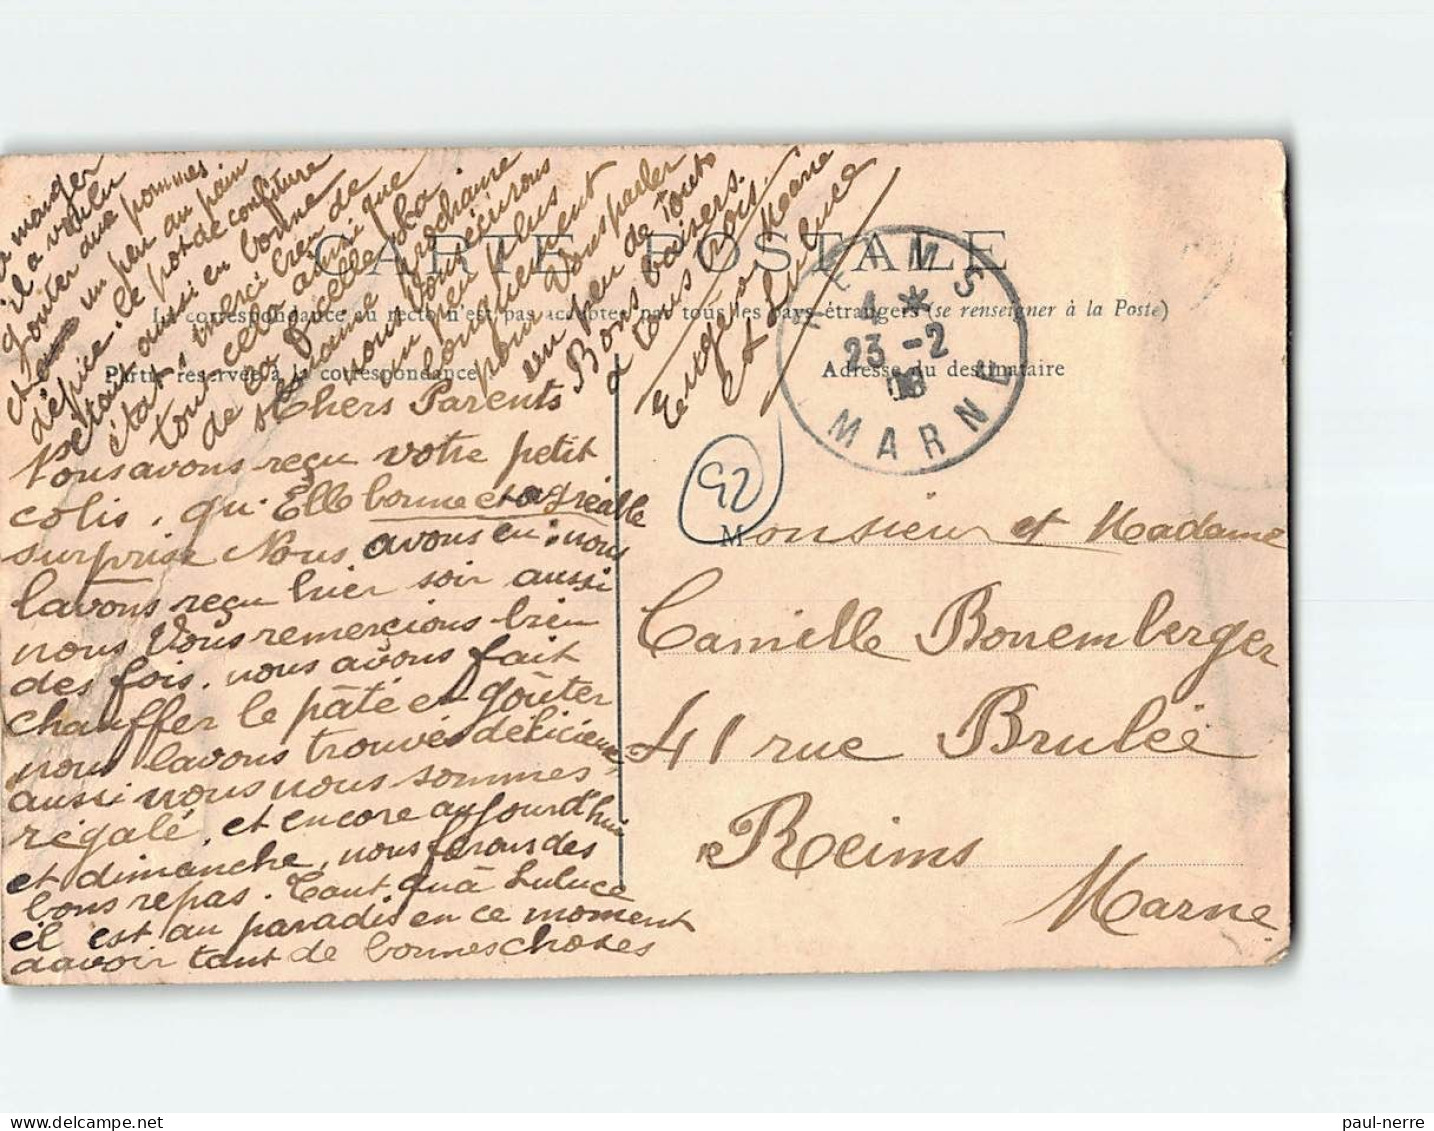 CARTE POSTALE
La correspondance au recto n'est pas acceptée par tous les pays étrangers (se renseigner à la Poste)
Partie réservée à la correspondance
Adresse du destinataire
REIMS
4 *
23 - 2
08
MARNE
92
Chers Parents
Nous avons reçu votre petit
colis, qu'Elle bonne et agréable
surprise Nous avons eu; nous
lavons reçu hier soir aussi
nous Vous remercions bien
des fois. nous avons fait
chauffer le pâté et goûter
nous lavons trouvés délicieux
aussi nous nous sommes
régalé, et encore aujourd'hui
et dimanche, nous ferons des
bons repas. Tant qu'à Luluce
il est au paradis en ce moment
davoir tant de bonnes choses
a manger
il a voulu
goûter aux pommes
un peu au pain
d'épice. le pot de confiture
était aussi en bonne
état merci bien de
tout cela ainsi que
de la ficelle. La
semaine prochaine
nous vous écrirons
un peu plus
longuement
pour Vous parler
un peu de tout
Bons baisers.
a tous trois.
Eugène Jeanne
et Luluce
Monsieur et Madame
Camille Bonemberger
41 rue Brulée
Reims
Marne
paul-nerre